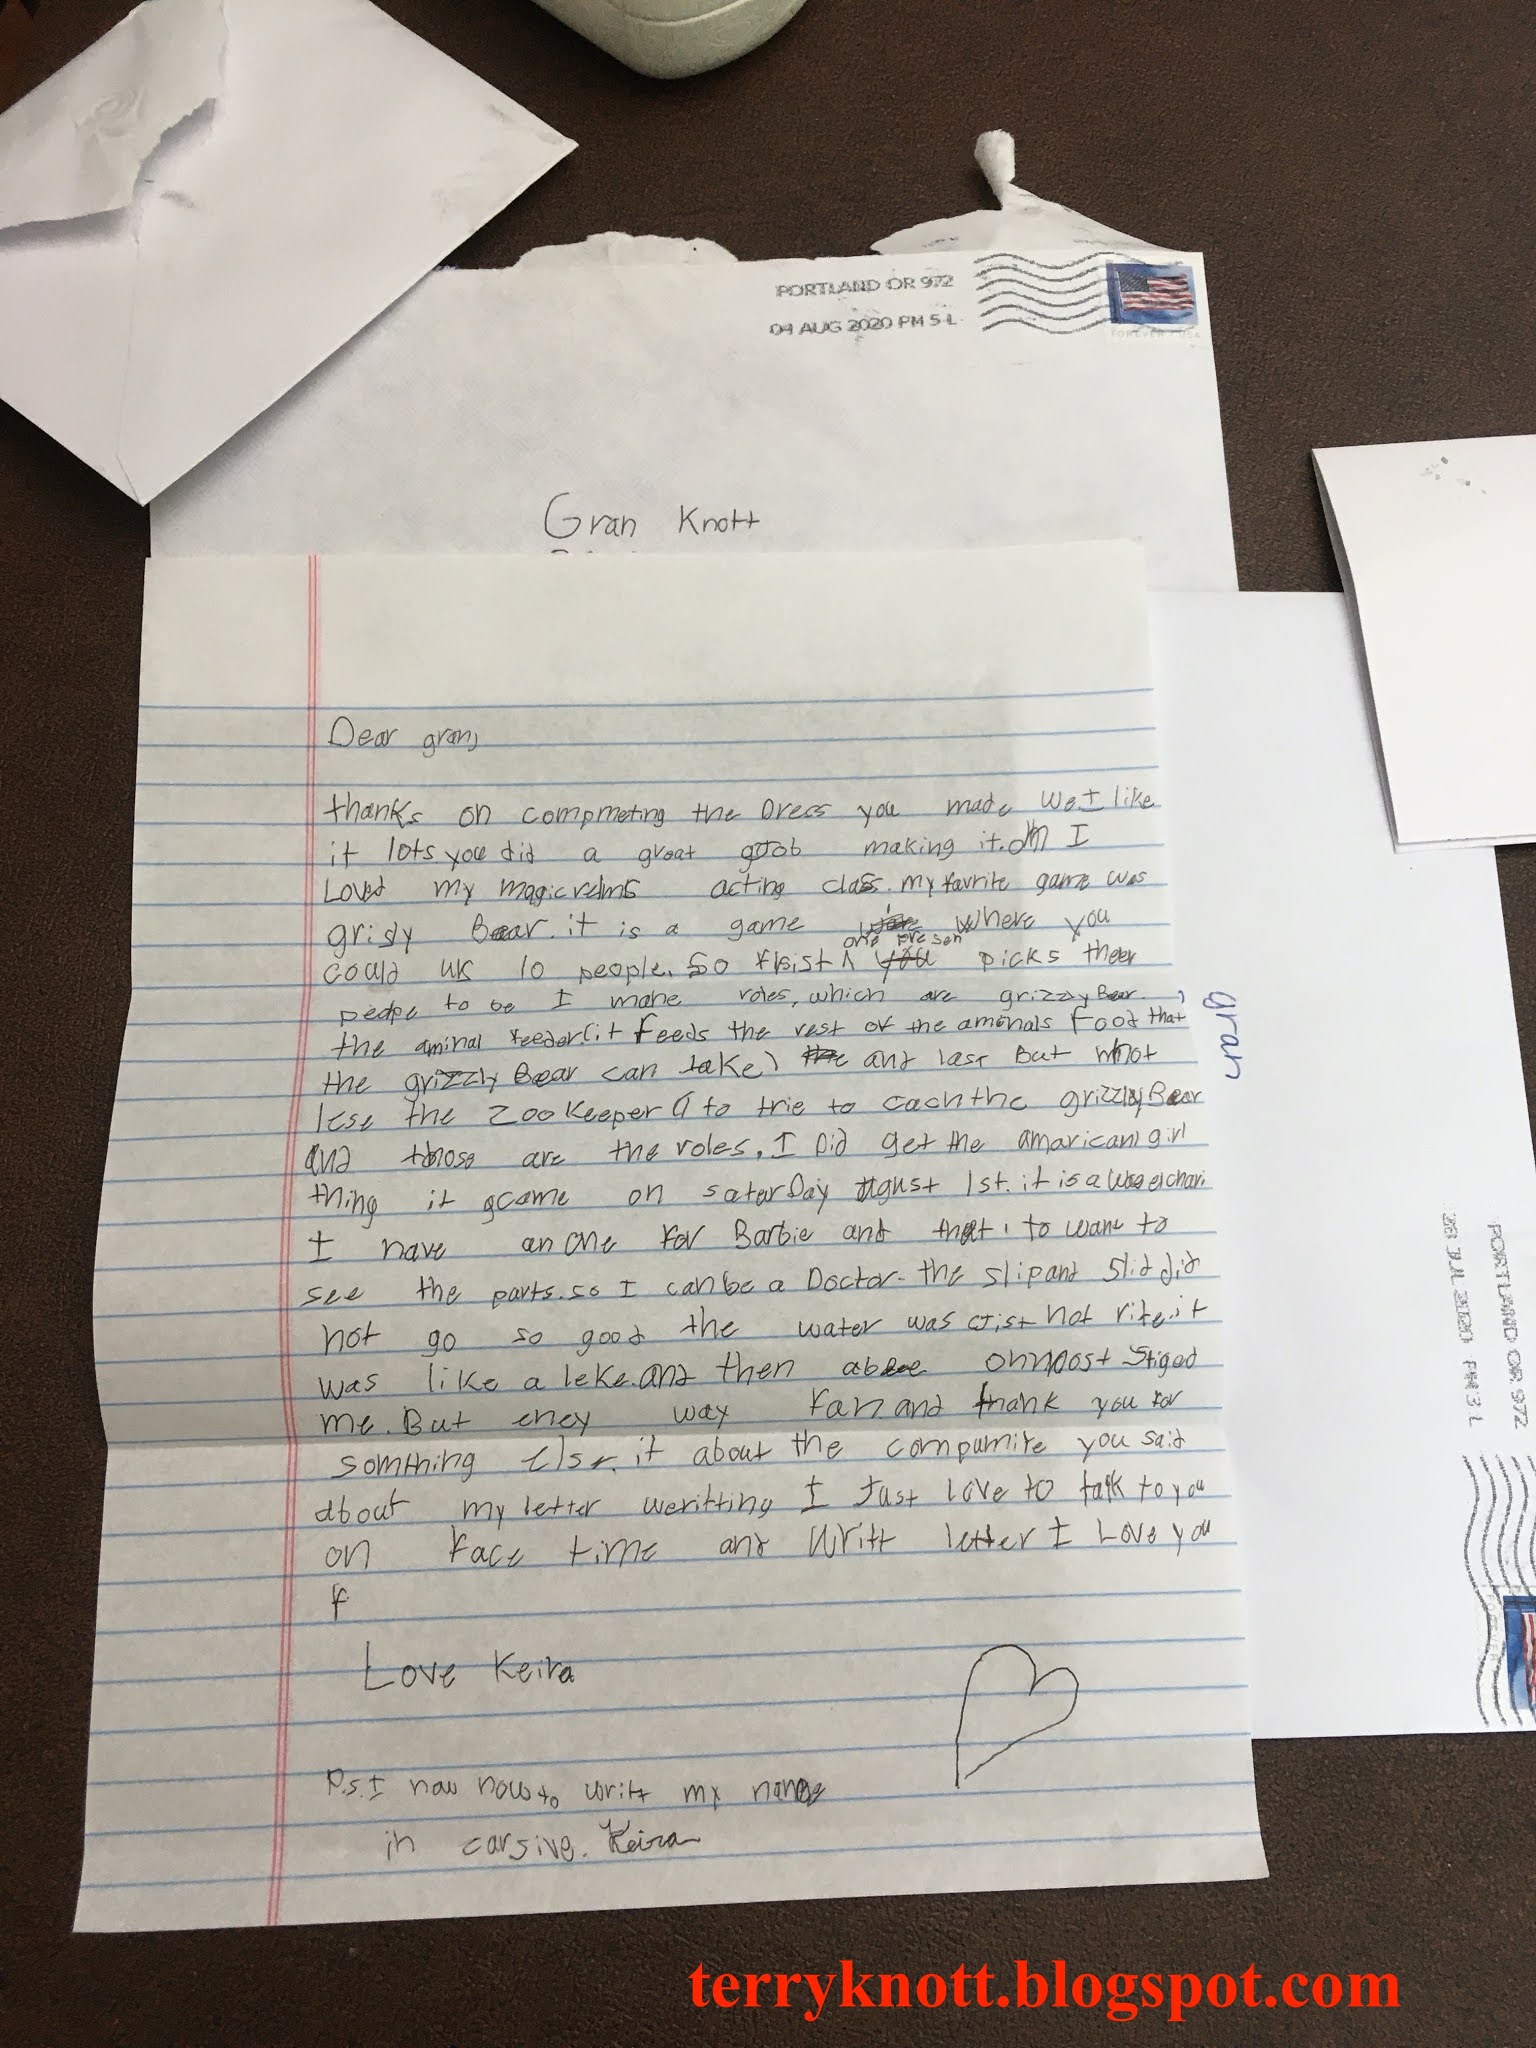 PORTLAND OR 972
04 AUG 2020 PM 5 L
FOREVER / USA
Gran Knott
Dear gran,
thanks on compmeting the Dress you made we I like
it lots you did a great gob making it. Oh I
Loved my magic relms acting class. my favrite game was
grisly Bear. it is a game where you
one preson
could us 10 people. So frist ^ you picks theer
peolpe to be I mane roles, which are grizzly Bear,
the aminal feeder (it feeds the rest of the amonals food that
the grizzly Bear can take) the and last But not
lese the Zoo Keeper to trie to cach the grizzly Bear
and those are the roles. I Did get the american girl
thing it came on saterDay august 1st. it is a
I have an one for Barbie and that i to want to
see the parts. so I can be a Doctor. the slip and slid did
not go so good the water was jist not rite. it
was like a leke. and then a bee omnost stiged
me. But eney way fan and thank you for
somthing else. it about the compumite you said
about my letter weritting I Just love to talk to you
on Face time and Writt letter I Love you
f
Love Keira
P.s. I now how to writt my name
in carsive. Keira
gran
PORTLAND OR 972
28 JUL 2020 PM 3 L
terryknott.blogspot.com